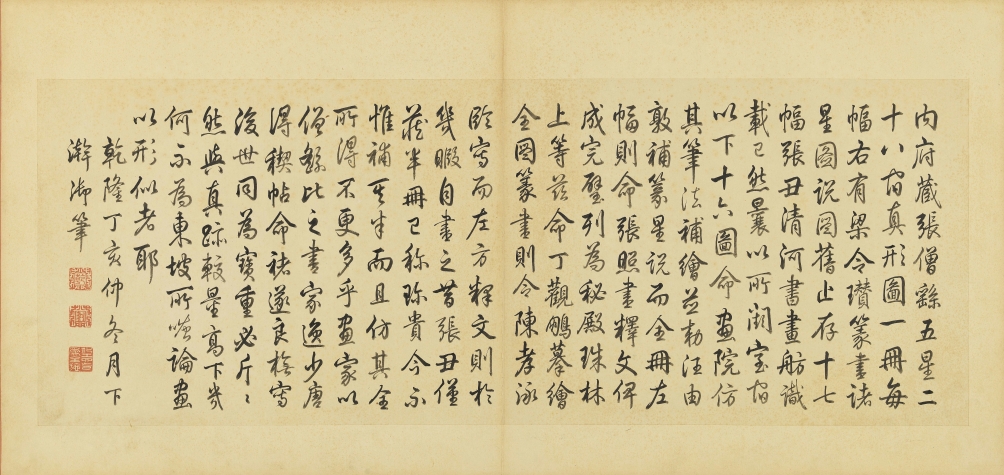 內府藏張僧繇五星二
十八宿真形圖一冊每
幅右有梁令瓚篆書諸
星圖說圖舊止存十七
幅張丑清河書畫舫識
載已然曩以所闕室宿
以下十六圖命畫院仿
其筆法補繪並勅汪由
敦補篆星說而全冊左
幅則命張照書釋文俾
成完璧列為秘殿珠林
上等茲命丁觀鵬摹繪
全圖篆書則令陳孝泳
臨寫而左方釋文則於
幾暇自書之昔張丑僅
藏半冊已称珍貴今不
惟補其半而且仿其全
所得不更多乎畫家以
僧繇比之書家逸少唐
得稧帖命褚遂良橅寫
後世同為寶重必斤〻
然與真跡較量高下幾
何不為東坡所嗤論畫
以形似者耶
乾隆丁亥仲冬月下
澣御筆